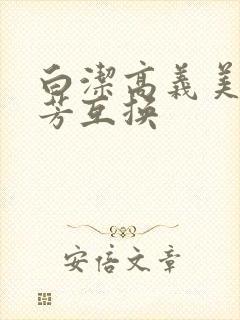 白潔高義美
芳互換
安倍文章